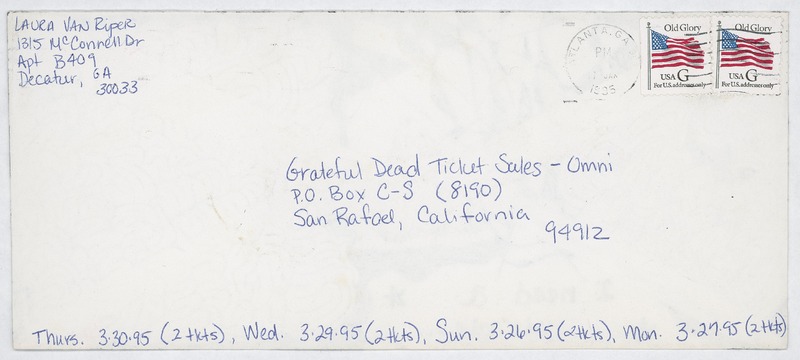 LAURA VAN Riper
1315 McConnell Dr
Apt B409
Decatur, GA
30033
ATLANTA, GA
PM
1995
Old Glory
USA G
For U.S. addresses only
Old Glory
USA G
For U.S. addresses only
Grateful Dead Ticket Sales - Omni
P.O. Box C-S (8190)
San Rafael, California
94912
Thurs. 3.30.95 (2 tkts), Wed. 3.29.95 (2 tkts), Sun. 3.26.95 (2 tkts), Mon. 3.27.95 (2 tkts)